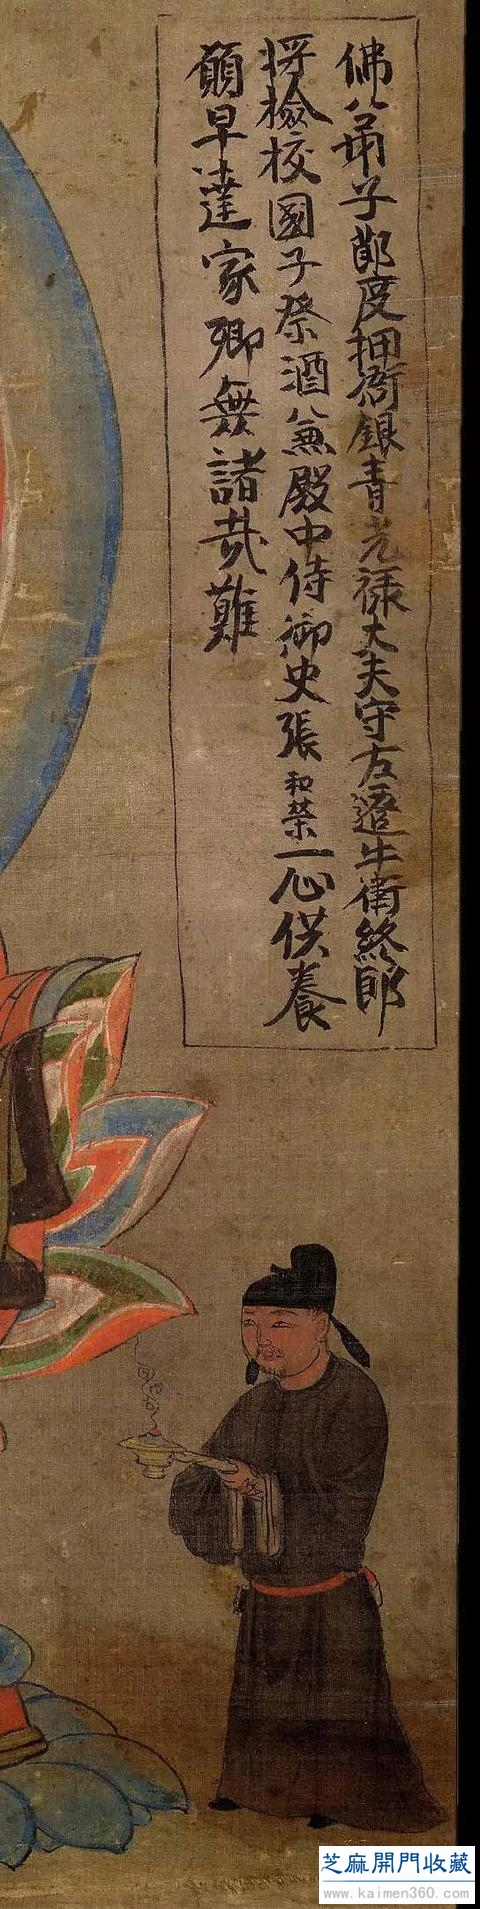 佛弟子節度押衙銀青光禄大夫守左遷牛衛終郎
將檢校國子祭酒兼殿中侍御史張和榮一心供養
願早達家鄉無諸哉難
芝麻開門收藏
www.kaimen360.com